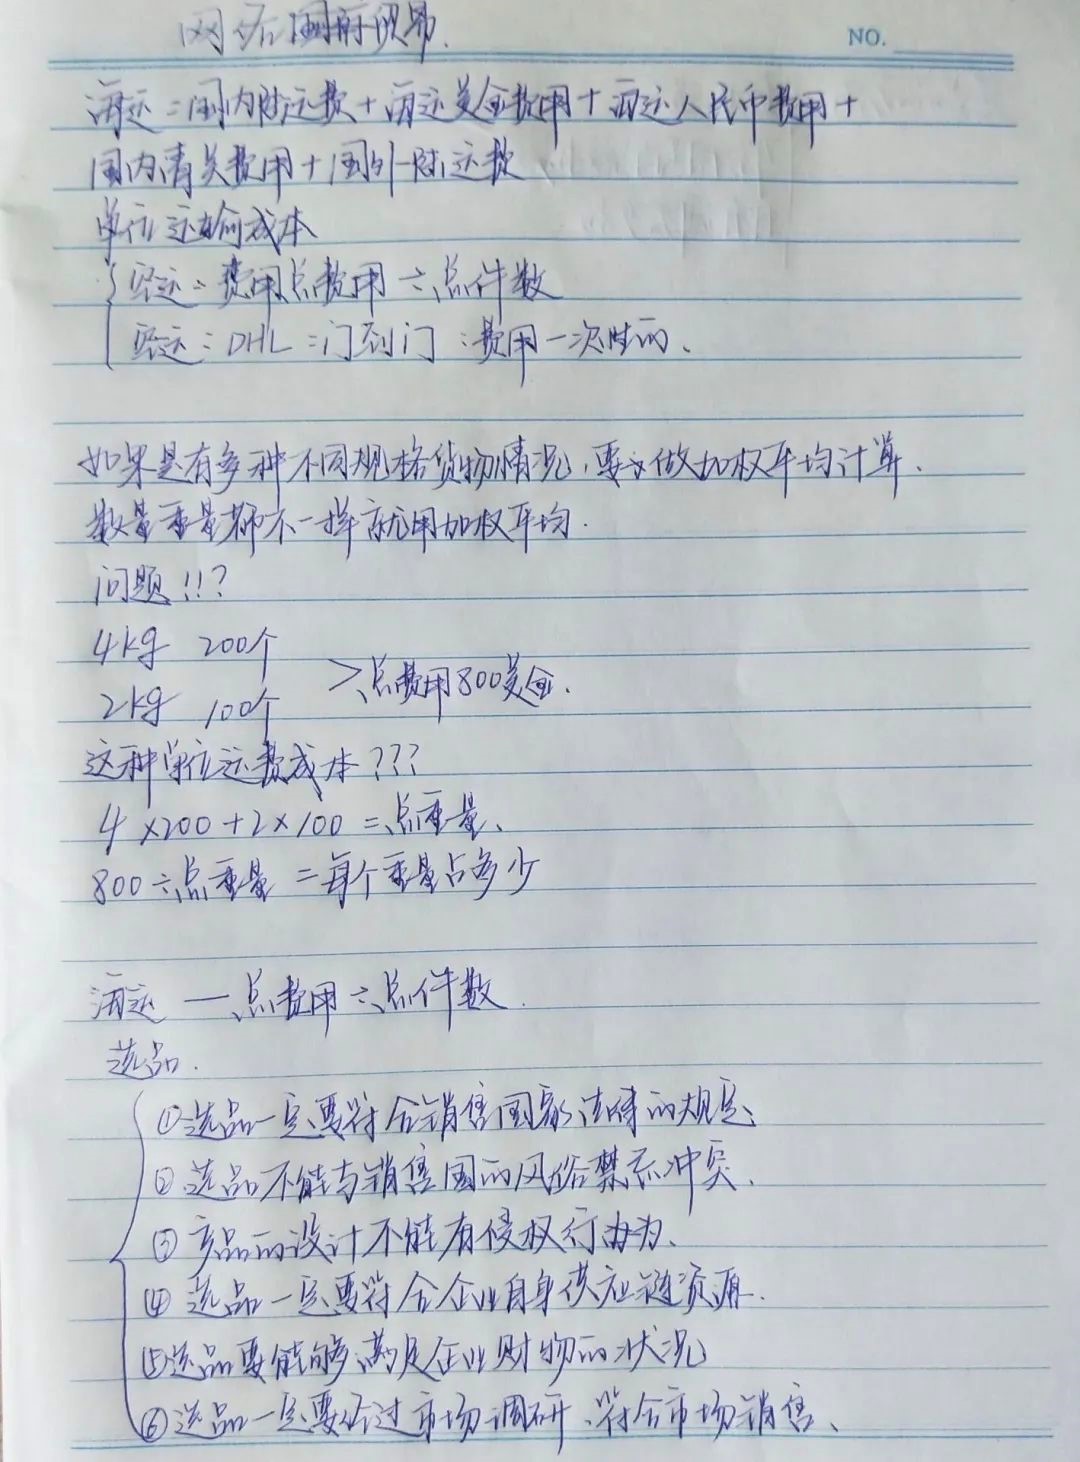 网络国际贸易.
NO.
海运:国内陆运费+海运美金费用+海运人民币费用+
国内清关费用+国外陆运费
单位运输成本
空运:费用总费用÷总件数
空运:DHL:门到门:费用一次性的、
如果是有多种不同规格货物情况,要求做加权平均计算.
数量重量都不一样就用加权平均.
问题!!?
4kg 200个
2kg 100个
>总费用800美金.
这种单位运费成本???
4×200+2×100=总重量、
800÷总重量=每个重量占多少
海运 — 总费用÷总件数.
选品.
①选品一定要符合销售国家法律的规定
②选品不能与销售国的风俗禁忌冲突.
③产品的设计不能有侵权行为、
④选品一定要符合企业自身供应链资源.
⑤选品要能够满足企业财物的状况
⑥选品一定要经过市场调研.符合市场销售、